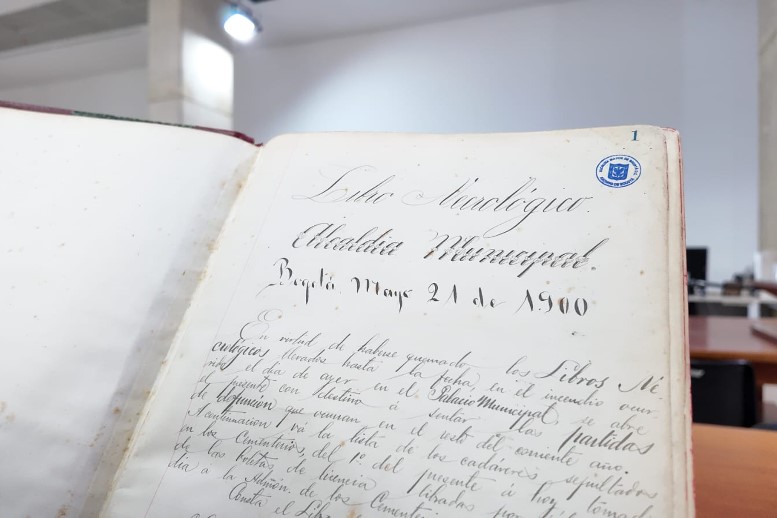 1
Libro Necrológico.
Alcaldia Municipal.
Bogotá Mayo 21 de 1900
En virtud de haberse quemado los Libros Ne-
crológicos llevados hasta la fecha, en el incendio ocur-
rido el dia de ayer en el Palacio Municipal, se abre
el presente con destino á sentar las partidas
de defunción que ocurran en el resto del corriente año.
A continuacion vá la lista de los cadáveres sepultados
en los Cementerios, del 1º. del presente á hoy, tomada
de las boletas de licencia libradas por
dia á la Admón. de los Cementerios
Consta el Libro